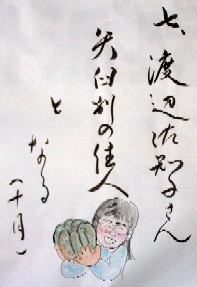 七、渡辺佐知子さん
矢臼別の佳人
と
なる
(十月)